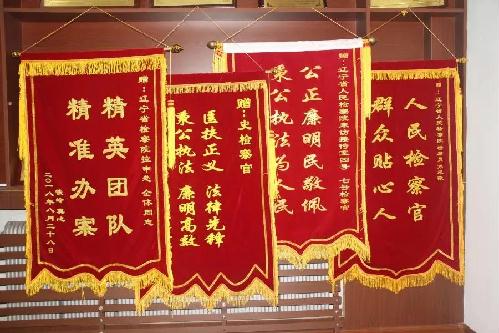 赠：辽宁省检察院控申处 全体同志
精英团队
精准办案
二〇一八年八月二十八日
赠：史检察官
匡扶正义 法律先锋
秉公执法 廉明高效
公正廉明民敬佩
秉公执法为人民
人民检察官
群众贴心人